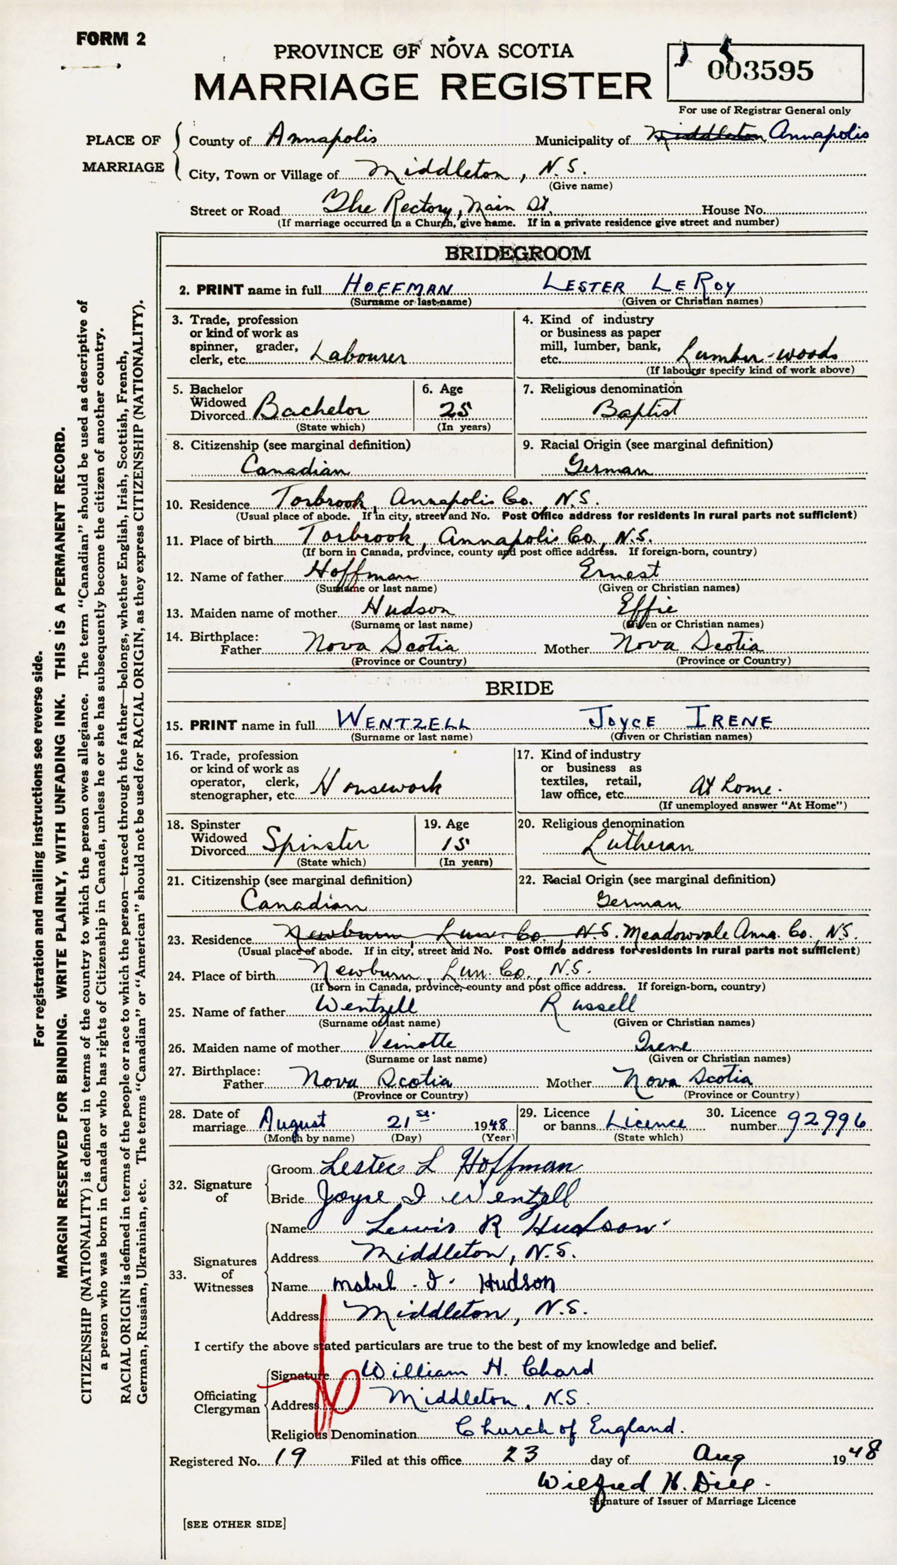 FORM 2
PROVINCE OF NOVA SCOTIA
MARRIAGE REGISTER
003595
For use of Registrar General only
PLACE OF MARRIAGE
County of Annapolis Municipality of Middleton Annapolis
City, Town or Village of Middleton, N.S.
(Give name)
Street or Road The Rectory, Main St. House No.
(If marriage occurred in a Church, give name. If in a private residence give street and number)
BRIDEGROOM
2. PRINT name in full HOFFMAN LESTER LEROY
(Surname or last name) (Given or Christian names)
3. Trade, profession or kind of work as spinner, grader, clerk, etc. Labourer
4. Kind of industry or business as paper mill, lumber, bank, etc. Lumber-woods
(If labourer specify kind of work above)
5. Bachelor Widowed Divorced Bachelor
(State which)
6. Age 25
(In years)
7. Religious denomination
Baptist
8. Citizenship (see marginal definition)
Canadian
9. Racial Origin (see marginal definition)
German
10. Residence Torbrook, Annapolis Co. N.S.
(Usual place of abode. If in city, street and No. Post Office address for residents in rural parts not sufficient)
11. Place of birth Torbrook, Annapolis Co., N.S.
(If born in Canada, province, county and post office address. If foreign-born, country)
12. Name of father Hoffman Ernest
(Surname or last name) (Given or Christian names)
13. Maiden name of mother Hudson Effie
(Surname or last name) (Given or Christian names)
14. Birthplace: Father Nova Scotia Mother Nova Scotia
(Province or Country) (Province or Country)
BRIDE
15. PRINT name in full WENTZELL JOYCE IRENE
(Surname or last name) (Given or Christian names)
16. Trade, profession or kind of work as operator, clerk, stenographer, etc. Housework
17. Kind of industry or business as textiles, retail, law office, etc. At home.
(If unemployed answer "At Home")
18. Spinster Widowed Divorced Spinster
(State which)
19. Age 15
(In years)
20. Religious denomination
Lutheran
21. Citizenship (see marginal definition)
Canadian
22. Racial Origin (see marginal definition)
German
23. Residence Newburn Lun. Co N.S. Meadowvale Anna. Co. N.S.
(Usual place of abode. If in city, street and No. Post Office address for residents in rural parts not sufficient)
24. Place of birth Newburn, Lun. Co., N.S.
(If born in Canada, province, county and post office address. If foreign-born, country)
25. Name of father Wentzell Russell
(Surname or last name) (Given or Christian names)
26. Maiden name of mother Veinotte Irene
(Surname or last name) (Given or Christian names)
27. Birthplace: Father Nova Scotia Mother Nova Scotia
(Province or Country) (Province or Country)
28. Date of marriage August 21st. 1948
(Month by name) (Day) (Year)
29. Licence or banns Licence
(State which)
30. Licence number 92996
32. Signature of
Groom Lester L Hoffman
Bride Joyce I Wentzell
33. Signatures of Witnesses
Name Lewis R Hudson
Address Middleton, N.S.
Name Mabel. I. Hudson
Address Middleton, N.S.
I certify the above stated particulars are true to the best of my knowledge and belief.
Officiating Clergyman
Signature William H. Chard
Address Middleton, N.S
Religious Denomination Church of England.
Registered No. 19 Filed at this office 23 day of Aug 1948
Wilfred H. Dill.
Signature of Issuer of Marriage Licence
[SEE OTHER SIDE]
For registration and mailing instructions see reverse side.
MARGIN RESERVED FOR BINDING. WRITE PLAINLY, WITH UNFADING INK. THIS IS A PERMANENT RECORD.
CITIZENSHIP (NATIONALITY) is defined in terms of the country to which the person owes allegiance. The term "Canadian" should be used as descriptive of
a person who was born in Canada or who has rights of Citizenship in Canada, unless he or she has subsequently become the citizen of another country.
RACIAL ORIGIN is defined in terms of the people or race to which the person—traced through the father—belongs, whether English, Irish, Scottish, French,
German, Russian, Ukrainian, etc. The terms "Canadian" or "American" should not be used for RACIAL ORIGIN, as they express CITIZENSHIP (NATIONALITY).